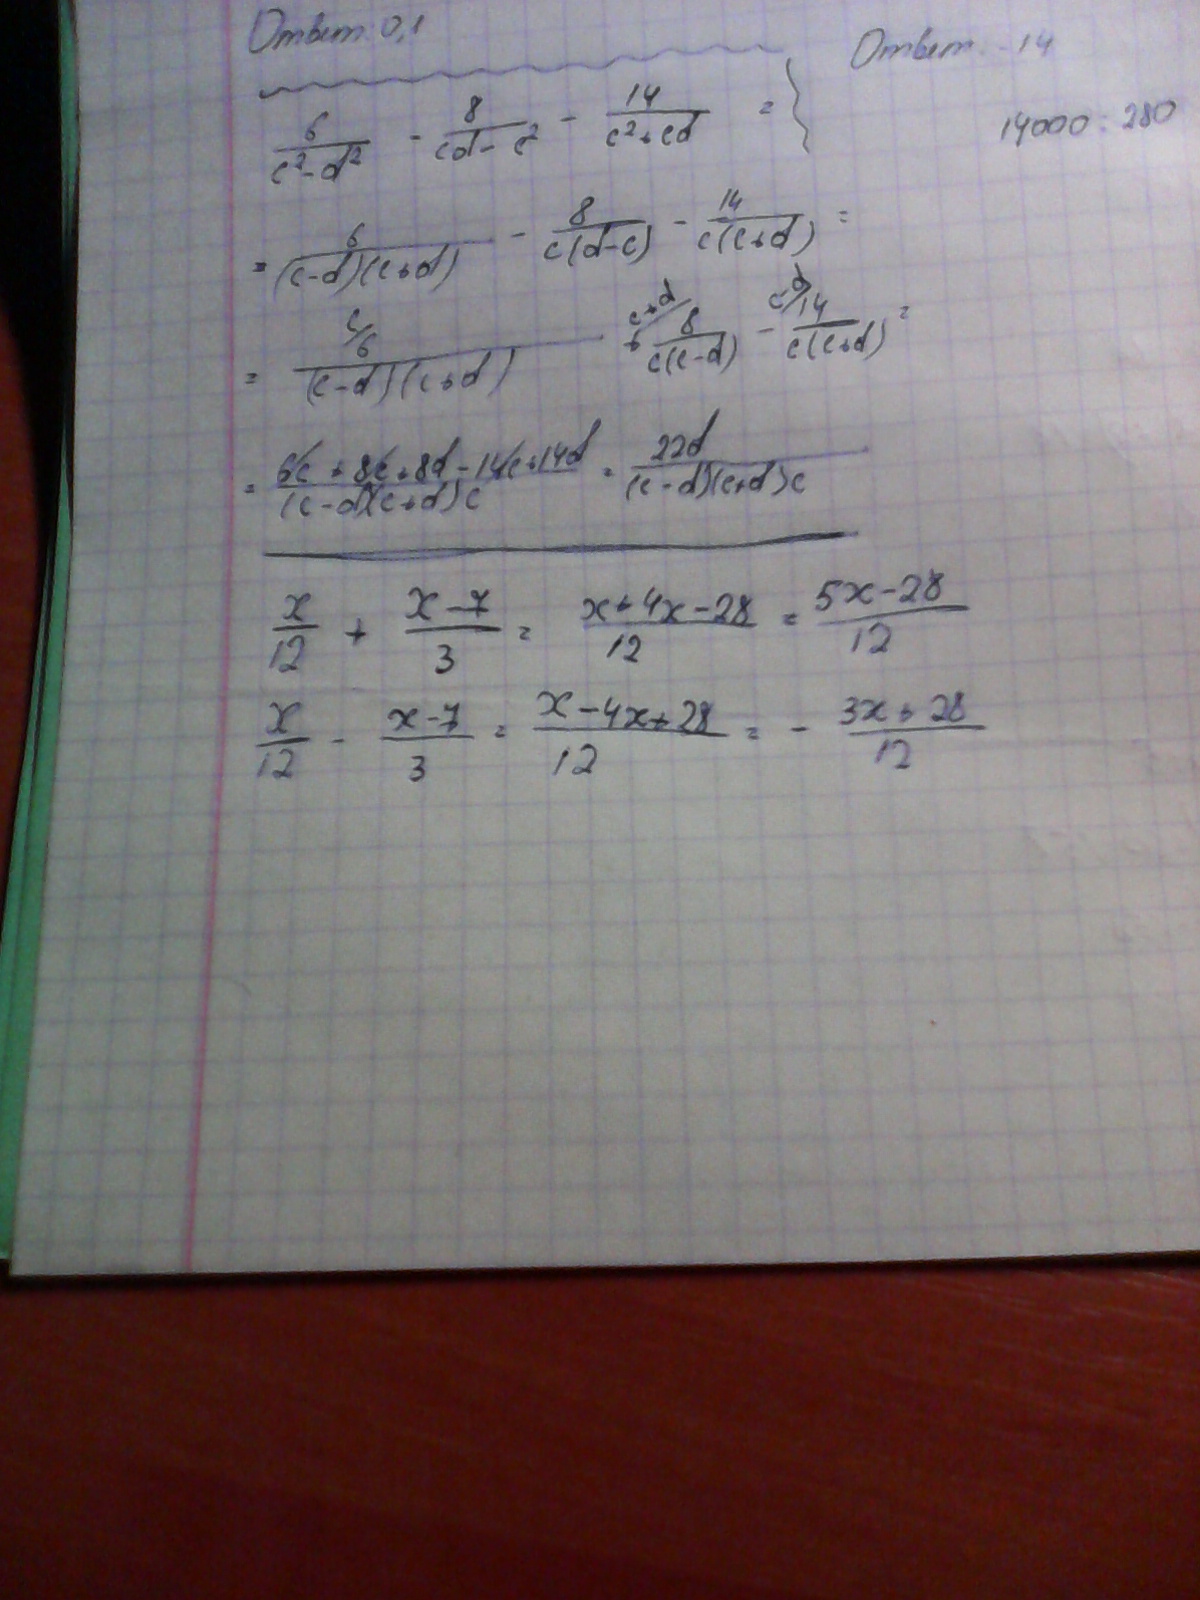 Ответ: 0,1
Ответ: -14
14000 : 280
6/(c²-d²) - 8/(cd-c²) - 14/(c²+cd) =
= 6/((c-d)(c+d)) - 8/(c(d-c)) - 14/(c(c+d)) =
= c/ 6/((c-d)(c+d)) + c+d/ 8/(c(c-d)) - c-d/ 14/(c(c+d)) =
= (6c+8c+8d-14c+14d)/((c-d)(c+d)c) = 22d/((c-d)(c+d)c)
x/12 + (x-7)/3 = (x+4x-28)/12 = (5x-28)/12
x/12 - (x-7)/3 = (x-4x+28)/12 = - (3x+28)/12